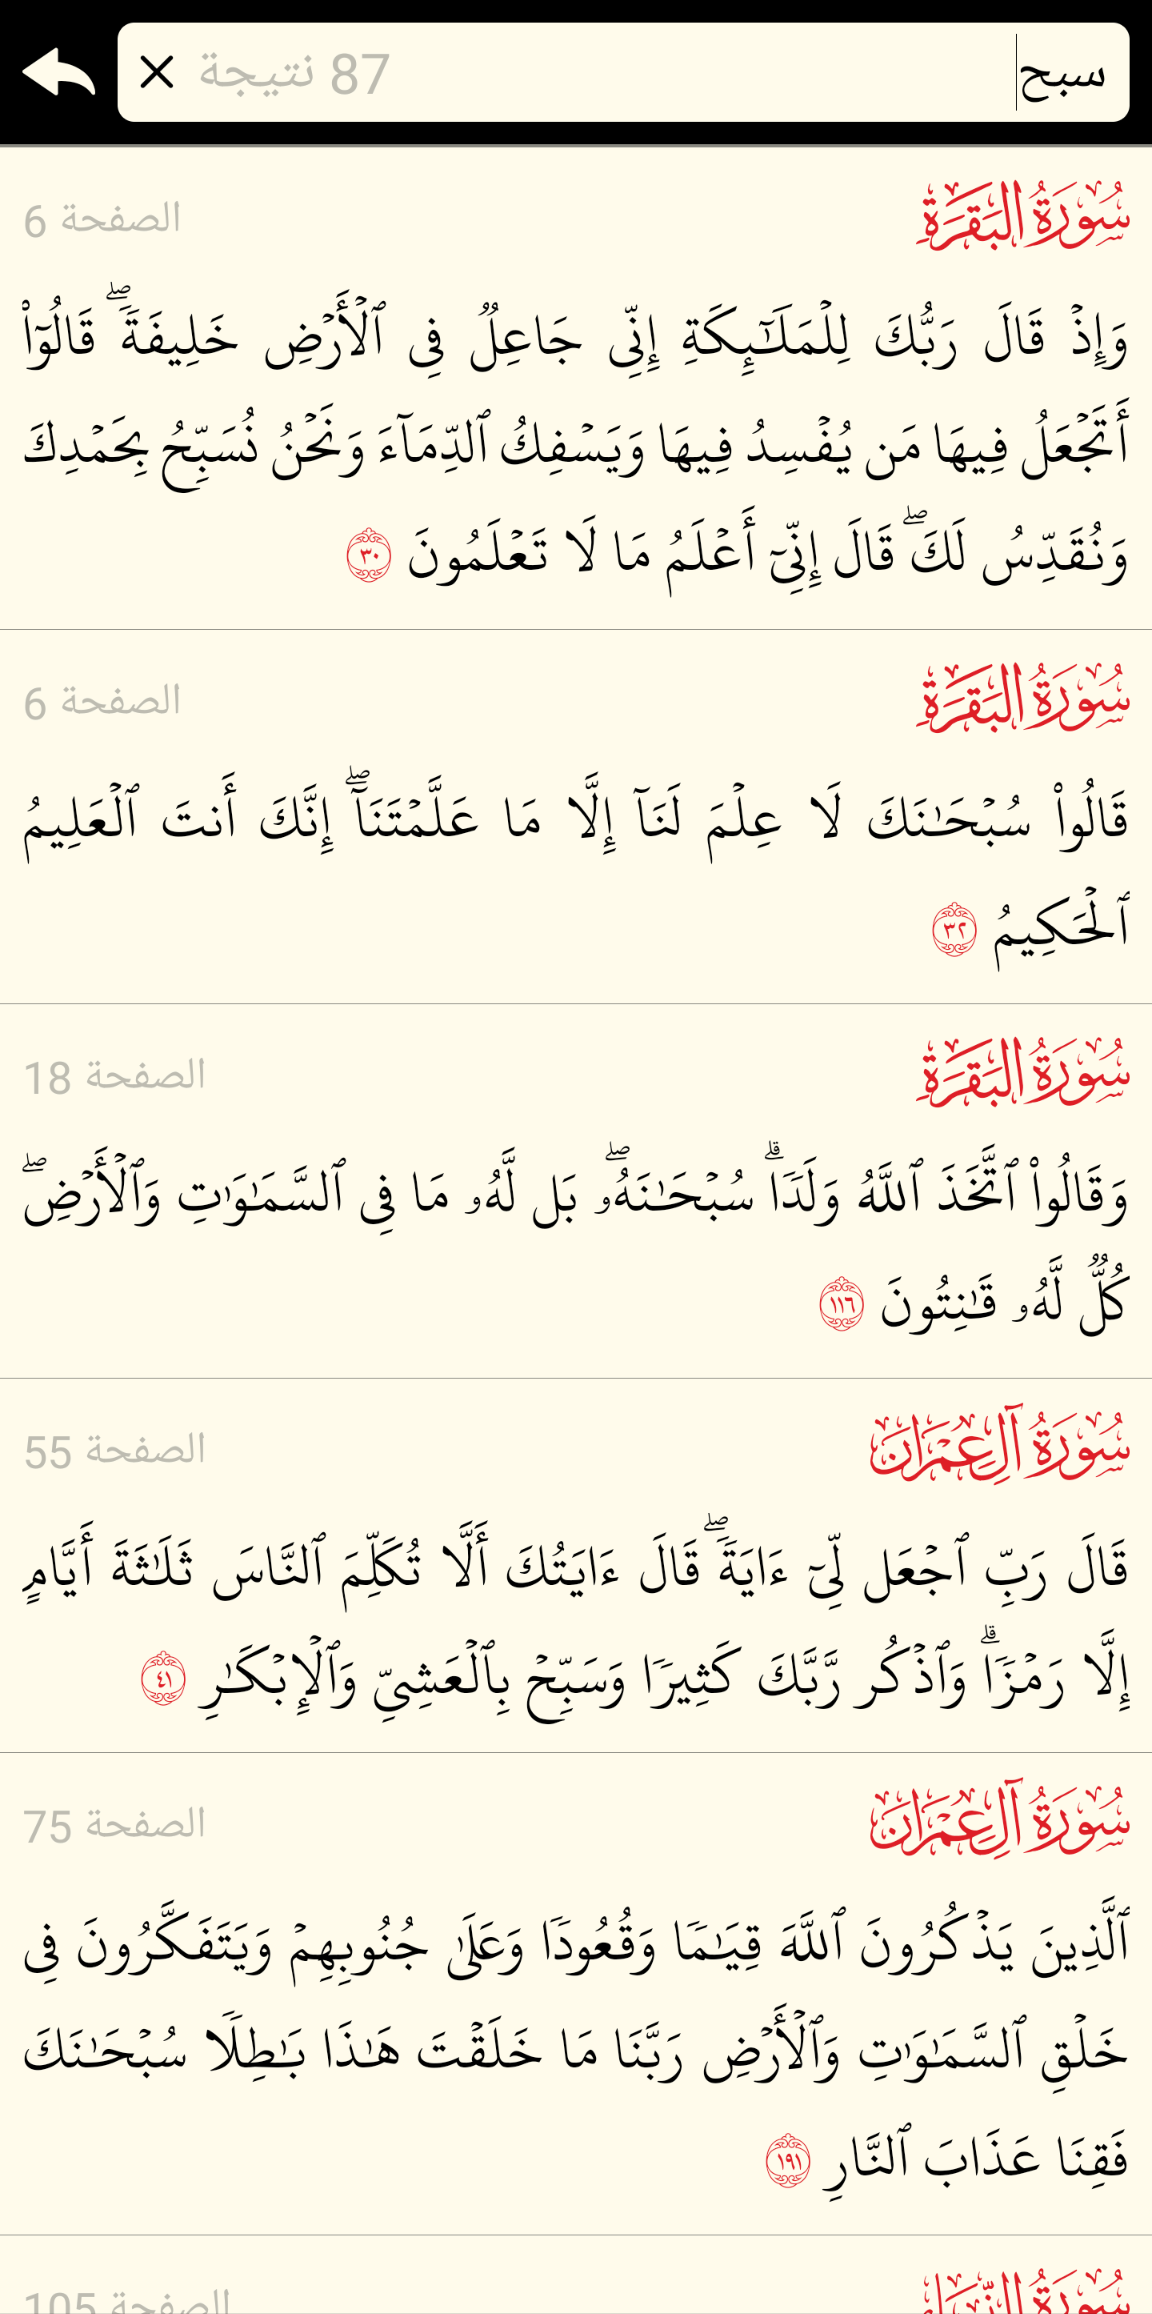 سبح 87 نتيجة
سُورَةُ البَقَرَةِ الصفحة 6
وَإِذۡ قَالَ رَبُّكَ لِلۡمَلَـٰٓئِكَةِ إِنِّی جَاعِلࣱ فِی ٱلۡأَرۡضِ خَلِیفَةࣰۖ قَالُوۤا۟
أَتَجۡعَلُ فِیهَا مَن یُفۡسِدُ فِیهَا وَیَسۡفِكُ ٱلدِّمَاۤءَ وَنَحۡنُ نُسَبِّحُ بِحَمۡدِكَ
وَنُقَدِّسُ لَكَۖ قَالَ إِنِّیۤ أَعۡلَمُ مَا لَا تَعۡلَمُونَ ٣٠
سُورَةُ البَقَرَةِ الصفحة 6
قَالُوا۟ سُبۡحَـٰنَكَ لَا عِلۡمَ لَنَاۤ إِلَّا مَا عَلَّمۡتَنَاۤۖ إِنَّكَ أَنتَ ٱلۡعَلِیمُ
ٱلۡحَكِیمُ ٣٢
سُورَةُ البَقَرَةِ الصفحة 18
وَقَالُوا۟ ٱتَّخَذَ ٱللَّهُ وَلَدࣰاۗ سُبۡحَـٰنَهُۥۖ بَل لَّهُۥ مَا فِی ٱلسَّمَـٰوَ ٰ⁠تِ وَٱلۡأَرۡضِۖ
كُلࣱّ لَّهُۥ قَـٰنِتُونَ ١١٦
سُورَةُ آلِ عِمۡرَانَ الصفحة 55
قَالَ رَبِّ ٱجۡعَل لِّیۤ ءَایَةࣰۖ قَالَ ءَایَتُكَ أَلَّا تُكَلِّمَ ٱلنَّاسَ ثَلَـٰثَةَ أَیَّامٍ
إِلَّا رَمۡزࣰاۗ وَٱذۡكُر رَّبَّكَ كَثِیرࣰا وَسَبِّحۡ بِٱلۡعَشِیِّ وَٱلۡإِبۡكَـٰرِ ٤١
سُورَةُ آلِ عِمۡرَانَ الصفحة 75
ٱلَّذِینَ یَذۡكُرُونَ ٱللَّهَ قِیَـٰمࣰا وَقُعُودࣰا وَعَلَىٰ جُنُوبِهِمۡ وَیَتَفَكَّرُونَ فِی
خَلۡقِ ٱلسَّمَـٰوَ ٰ⁠تِ وَٱلۡأَرۡضِ رَبَّنَا مَا خَلَقۡتَ هَـٰذَا بَـٰطِلࣰا سُبۡحَـٰنَكَ
فَقِنَا عَذَابَ ٱلنَّارِ ١٩١
سُورَةُ النِّسَاءِ الصفحة 105